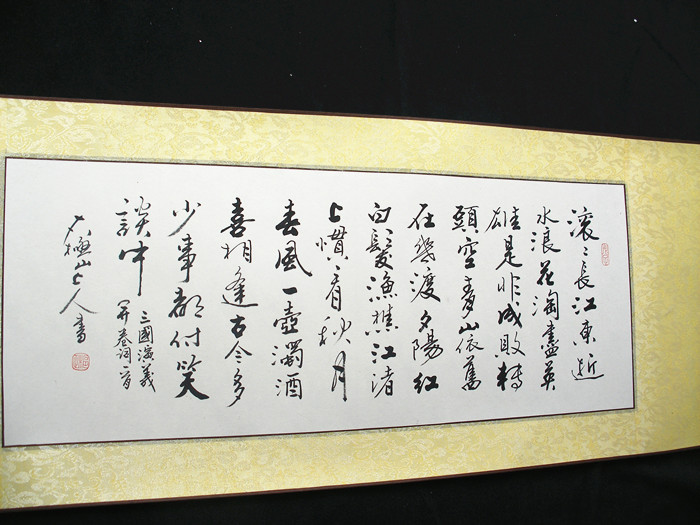 滚〻長江東逝
水浪花淘盡英
雄是非成敗轉
頭空青山依舊
在幾渡夕陽紅
白髮漁樵江渚
上慣看秋月
春風一壺濁酒
喜相逢古今多
少事都付笑
談中
三國演義
开卷詞一首
太極山上人書